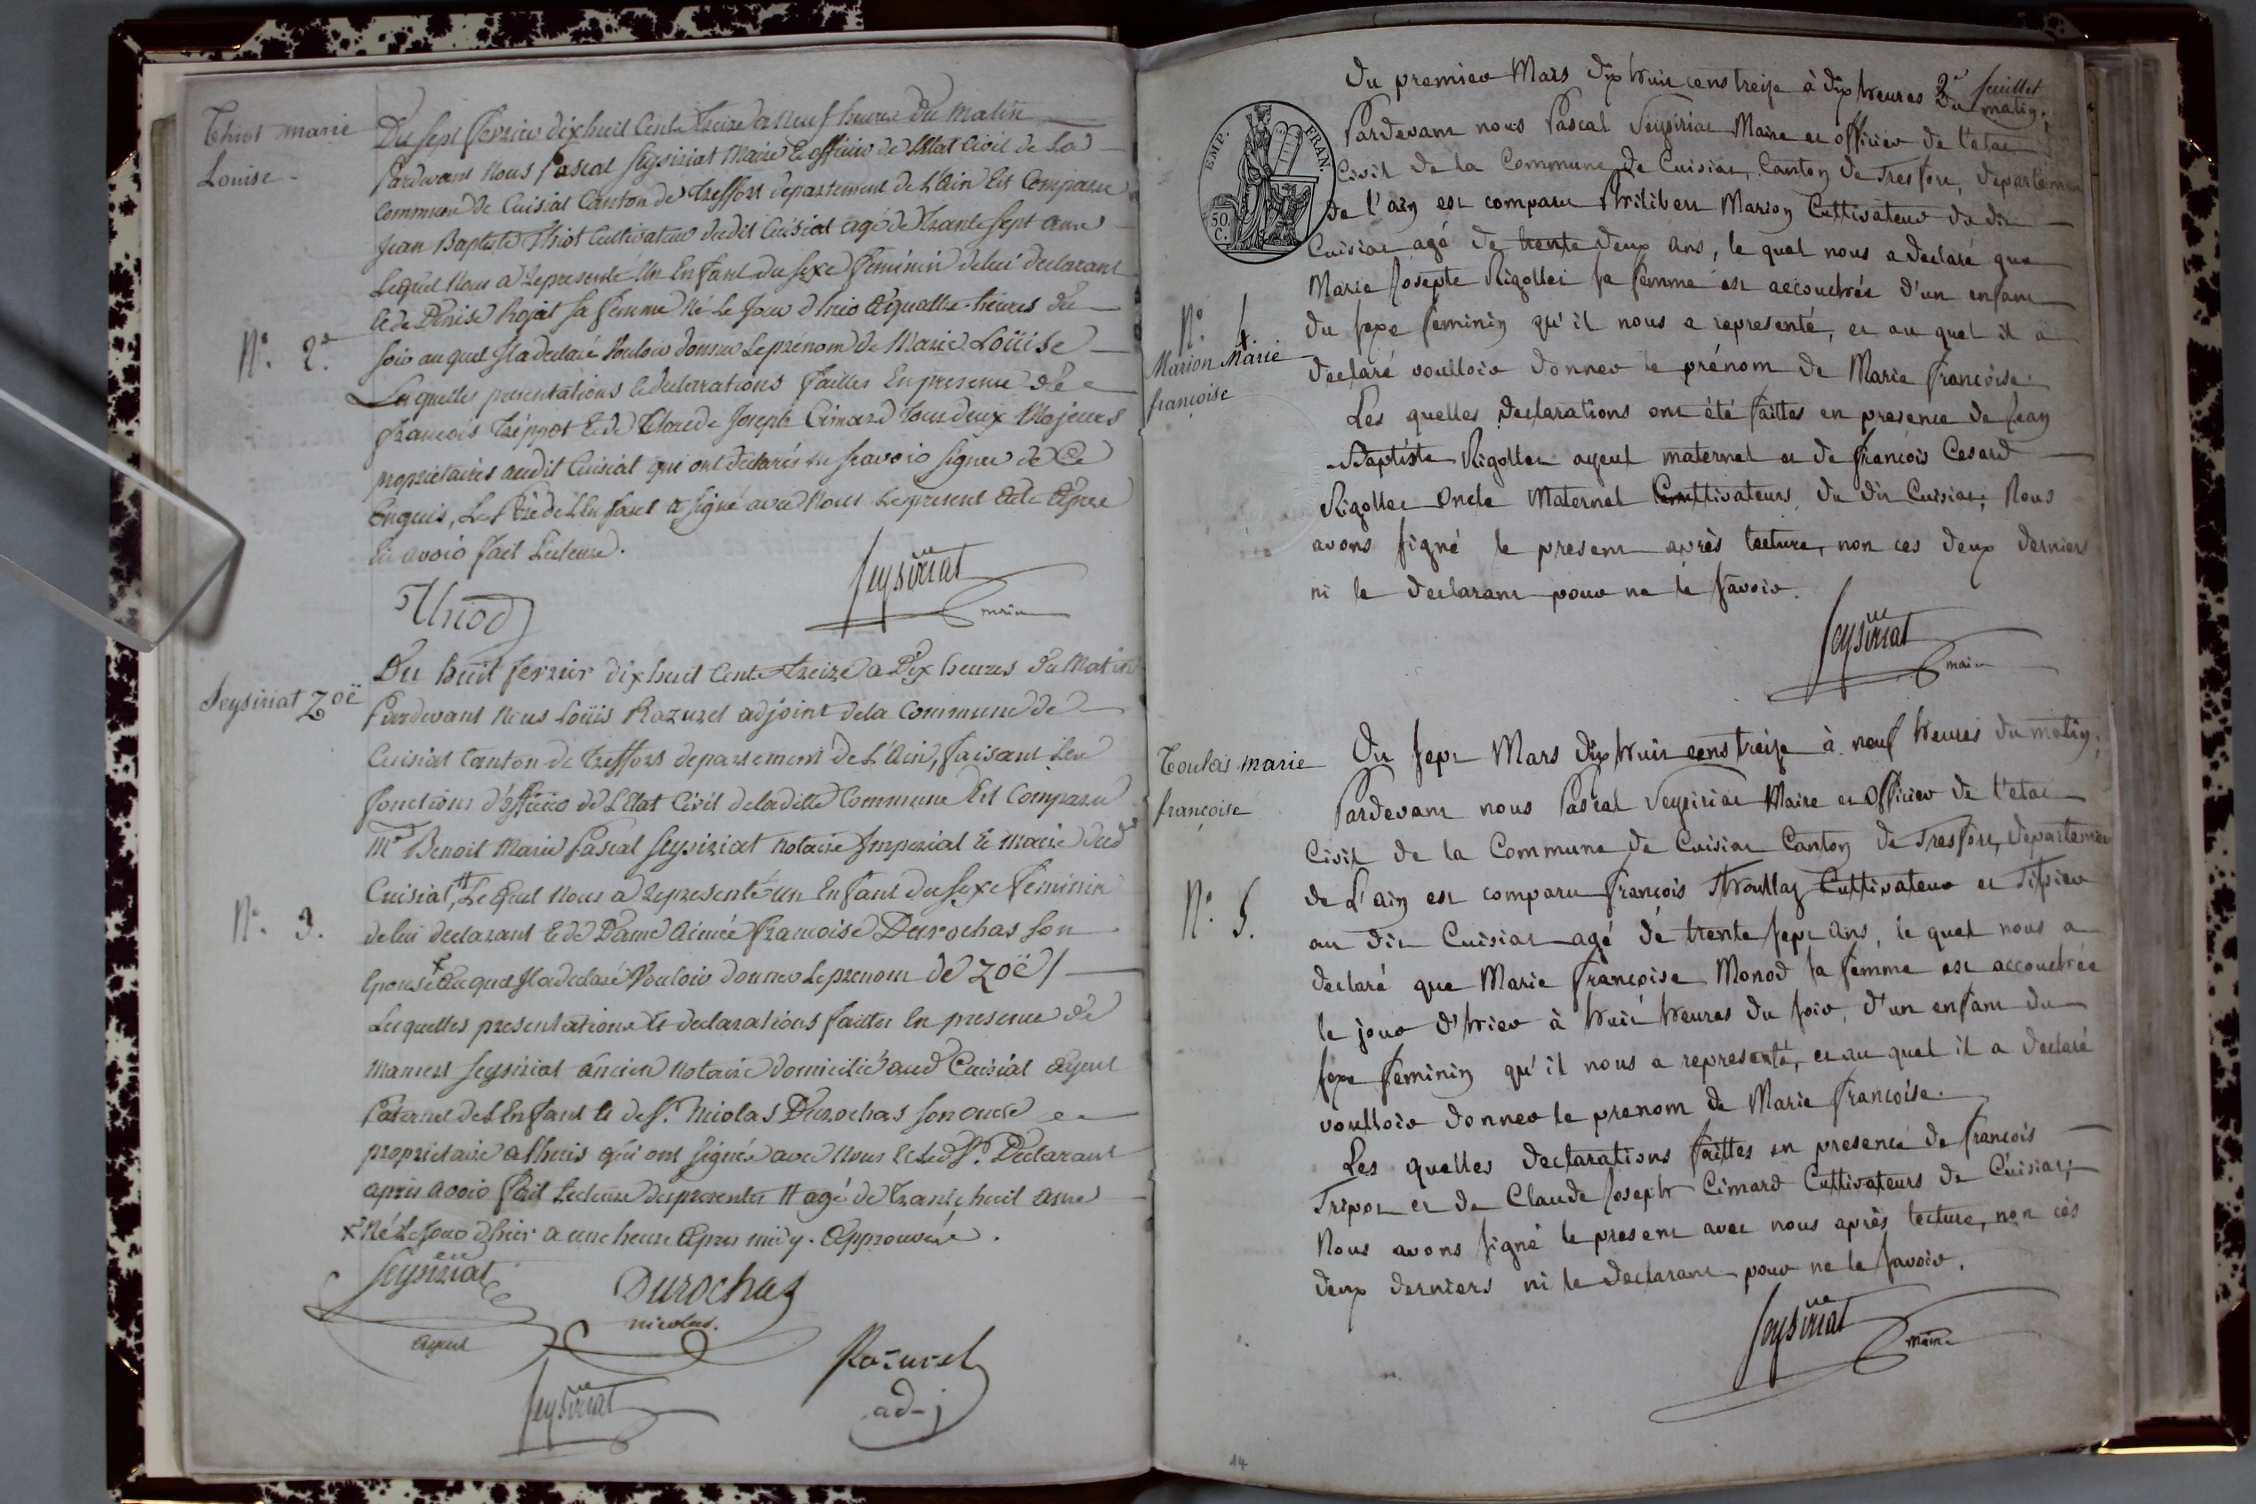 Thiot marie
Louise -
N.° 2.e
Du sept fevrier dix huit Cent Treize a neuf heures Du Matin
Pardevant Nous Pascal Seysiriat Maire & officier de L'Etat Civil de La
Commune de Cuisiat Canton de Treffort departement de L'ain Est Comparu
Jean Baptiste Thiot Cultivateur dudit Cuisiat agé de Trante sept ans
Lequel Nous a Representé Un Enfant du sexe feminin de lui declarant
& de Denise Rojat sa femme Né Le Jour d'hier a quattre heures du
soir au quel Il a declaré Vouloir donner Le prenom de Marie Loüise
Les quelles presentations & declarations faittes En presence de
francois Tripot & de Claude Joseph Cimard Tous deux Majeurs
proprietaires audit Cuisiat qui ont declarés ne scavoir signer de Ce
Enquis, Le Père de L'Enfant a signé avec Nous Le present acte Apres
En avoir fait Lecture.
Thiod
Seysiriat
maire
Seysiriat Zoë
N.° 3.
Du huit fevrier dix huit Cent Treize a Dix heures du Matin
Pardevant Nous Loüis Razurel adjoint de la Commune de
Cuisiat Canton de Treffort departement de L'Ain, faisant Les
fonctions d'officier de L'Etat Civil de ladite Commune Est Comparu
M.e Benoit Marie Pascal Seysiriat notaire Imperial & maire dud
Cuisiat, # Le quel Nous a representé un Enfant du sexe feminin
de lui declarant & de Dame Aimée francoise Durochas son
Epouse x Au quel Il a declaré Vouloir donner Le prenom de Zoë /
Les quelles presentations & declarations faittes En presence de
Mamert Seysiriat ancien Notaire domicilié aud Cuisiat ayeul
Paternel de L'Enfant & de S.r Nicolas Durochas son oncle
proprietaire a qui ont signés avec Nous & Led S.r Declarant
apres avoir fait Lecture des presentes # agé de Trante huit ans
x Né Le Jour d'hier a une heure Apres midy. Approuvé.
Seysiriat
ayeul
Durochas
nicolas.
Seysiriat
Razurel
ad-j
2.e feuillet
EMP. FRAN.
50 C.
Du premier Mars dix huit cens treize à dix heures Du matin,
Pardevant nous Pascal Seysiriat Maire et officier de l'etat
Civil de la Commune de Cuisiat, Canton de Treffort, departement
de l'ain est comparu Philibert Marion Cultivateur du dit
Cuisiat agé de trente deux ans, le quel nous a declaré que
Marie Josepte Rigollet sa femme est accouchée d'un enfant
N.° 4.
Marion Marie
françoise
du sexe feminin qu'il nous a representé, et au quel il a
declaré voulloir donner le prénom de Marie françoise.
Les quelles declarations ont été faittes en presence de Jean
Baptiste Rigollet ayeul maternel et de françois Cesard
Rigollet oncle Maternel Cultivateurs du dit Cuisiat; Nous
avons signé le present après lecture, non ces deux derniers
ni le declarant pour ne le savoir.
Seysiriat
maire
Toulas marie
françoise
N.° 5.
Du sept Mars dix huit cens treize à neuf heures du matin,
Pardevant nous Pascal Seysiriat Maire et Officier de l'etat
Civil de la Commune de Cuisiat Canton de Treffort, departement
de L'ain est comparu françois Thoullaz Cultivateur et Tissier
au dit Cuisiat agé de trente sept ans, le quel nous a
declaré que Marie françoise Monod sa femme est accouchée
le jour d'hier à huit heures du soir, d'un enfant du
sexe feminin qu'il nous a representé, et au quel il a declaré
voulloir donner le prenom de Marie françoise.
Les quelles declarations faittes en presence de françois
Tripot et de Claude Joseph Cimard Cultivateurs de Cuisiat;
Nous avons signé le present avec nous après lecture, non ces
deux derniers ni le declarant pour ne le savoir.
Seysiriat
maire
14